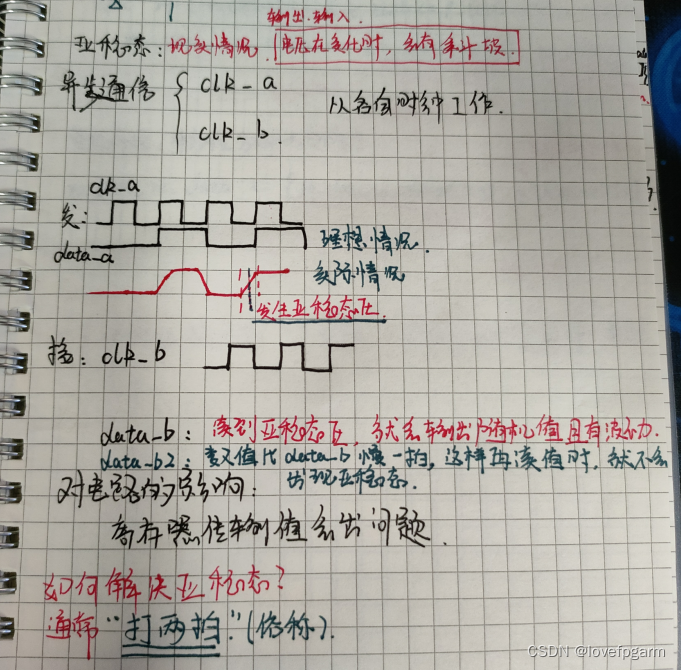 输出.输入.
亚稳态: 现实情况. 电压在变化时, 会有条斜坡.
异步通信 { clk_a
clk_b
以各自时钟工作.
clk_a
发:
data_a
理想情况.
实际情况
发生亚稳态区.
接: clk_b
data_b: 读到亚稳态区, 就会输出随机值且有波动.
data_b2: 变又值比data_b慢一拍, 这样再读值时, 就不会
出现亚稳态.
对电路的影响:
寄存器传输值会出问题.
如何解决亚稳态?
通常"打两拍"(俗称).
CSDN @lovefpgarm